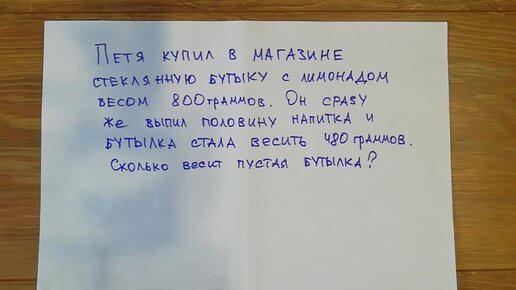 Петя купил в магазине
стеклянную бутылку с лимонадом
весом 800 граммов. Он сразу
же выпил половину напитка и
бутылка стала весить 480 граммов.
Сколько весит пустая бутылка?